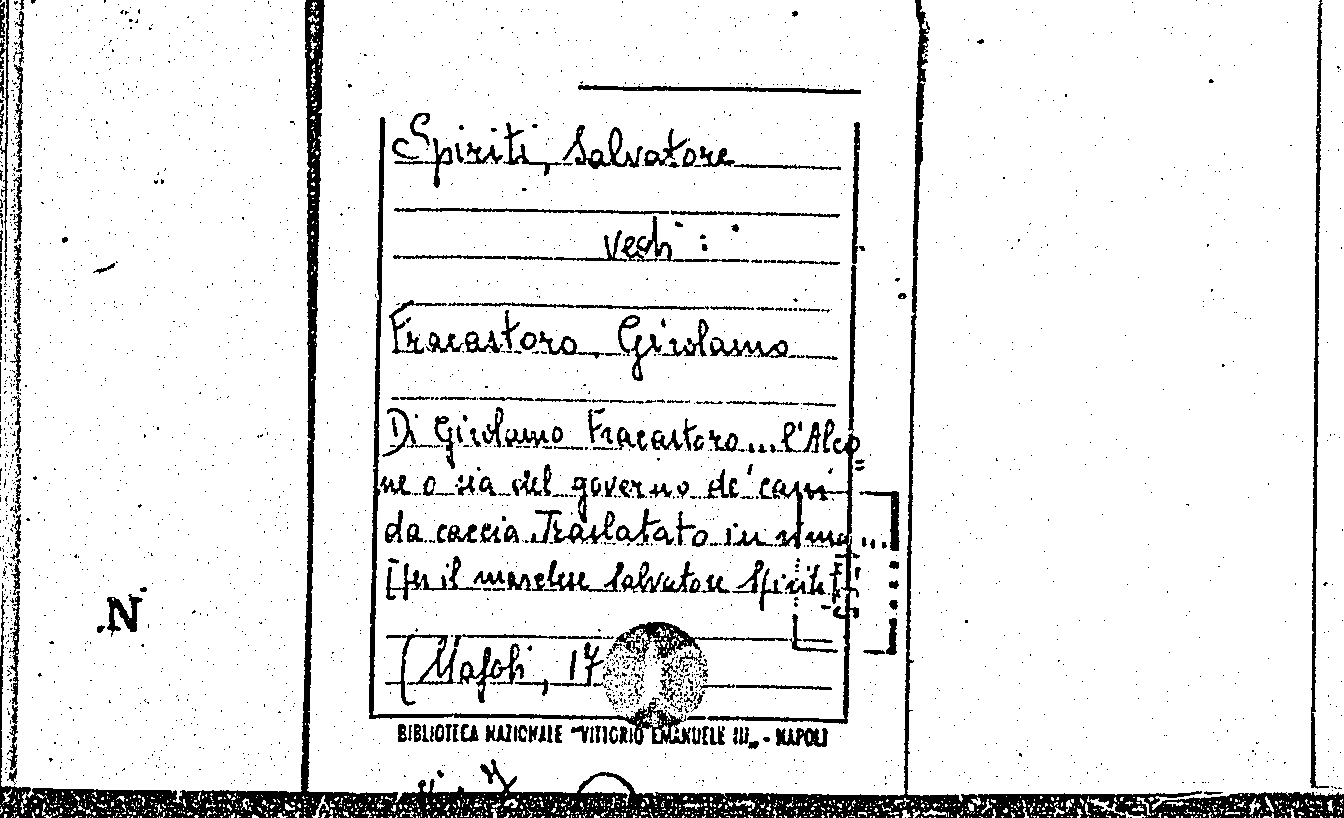 Spiriti, Salvatore
vedi :
Fracastoro, Girolamo
Di Girolamo Fracastoro... l'Alco=
ne o sia del governo de' cani
da caccia. Traslatato in rima...
[per il marchese Salvatore Spiriti]
(Napoli, 17
BIBLIOTECA NAZIONALE "VITTORIO EMANUELE III„ - NAPOLI
.N